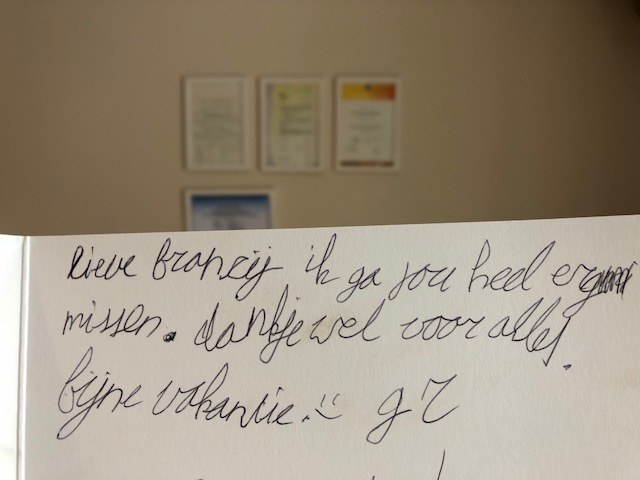 lieve francij ik ga jou heel erg
missen. dankjewel voor alles.
fijne vakantie. :) g7